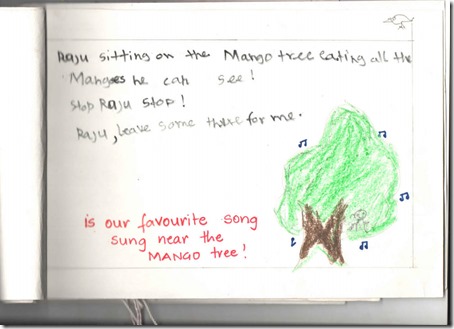 Raju sitting on the Mango tree eating all the
Mangoes he can see!
Stop Raju stop!
Raju, leave some there for me.
is our favourite song
sung near the
MANGO tree!